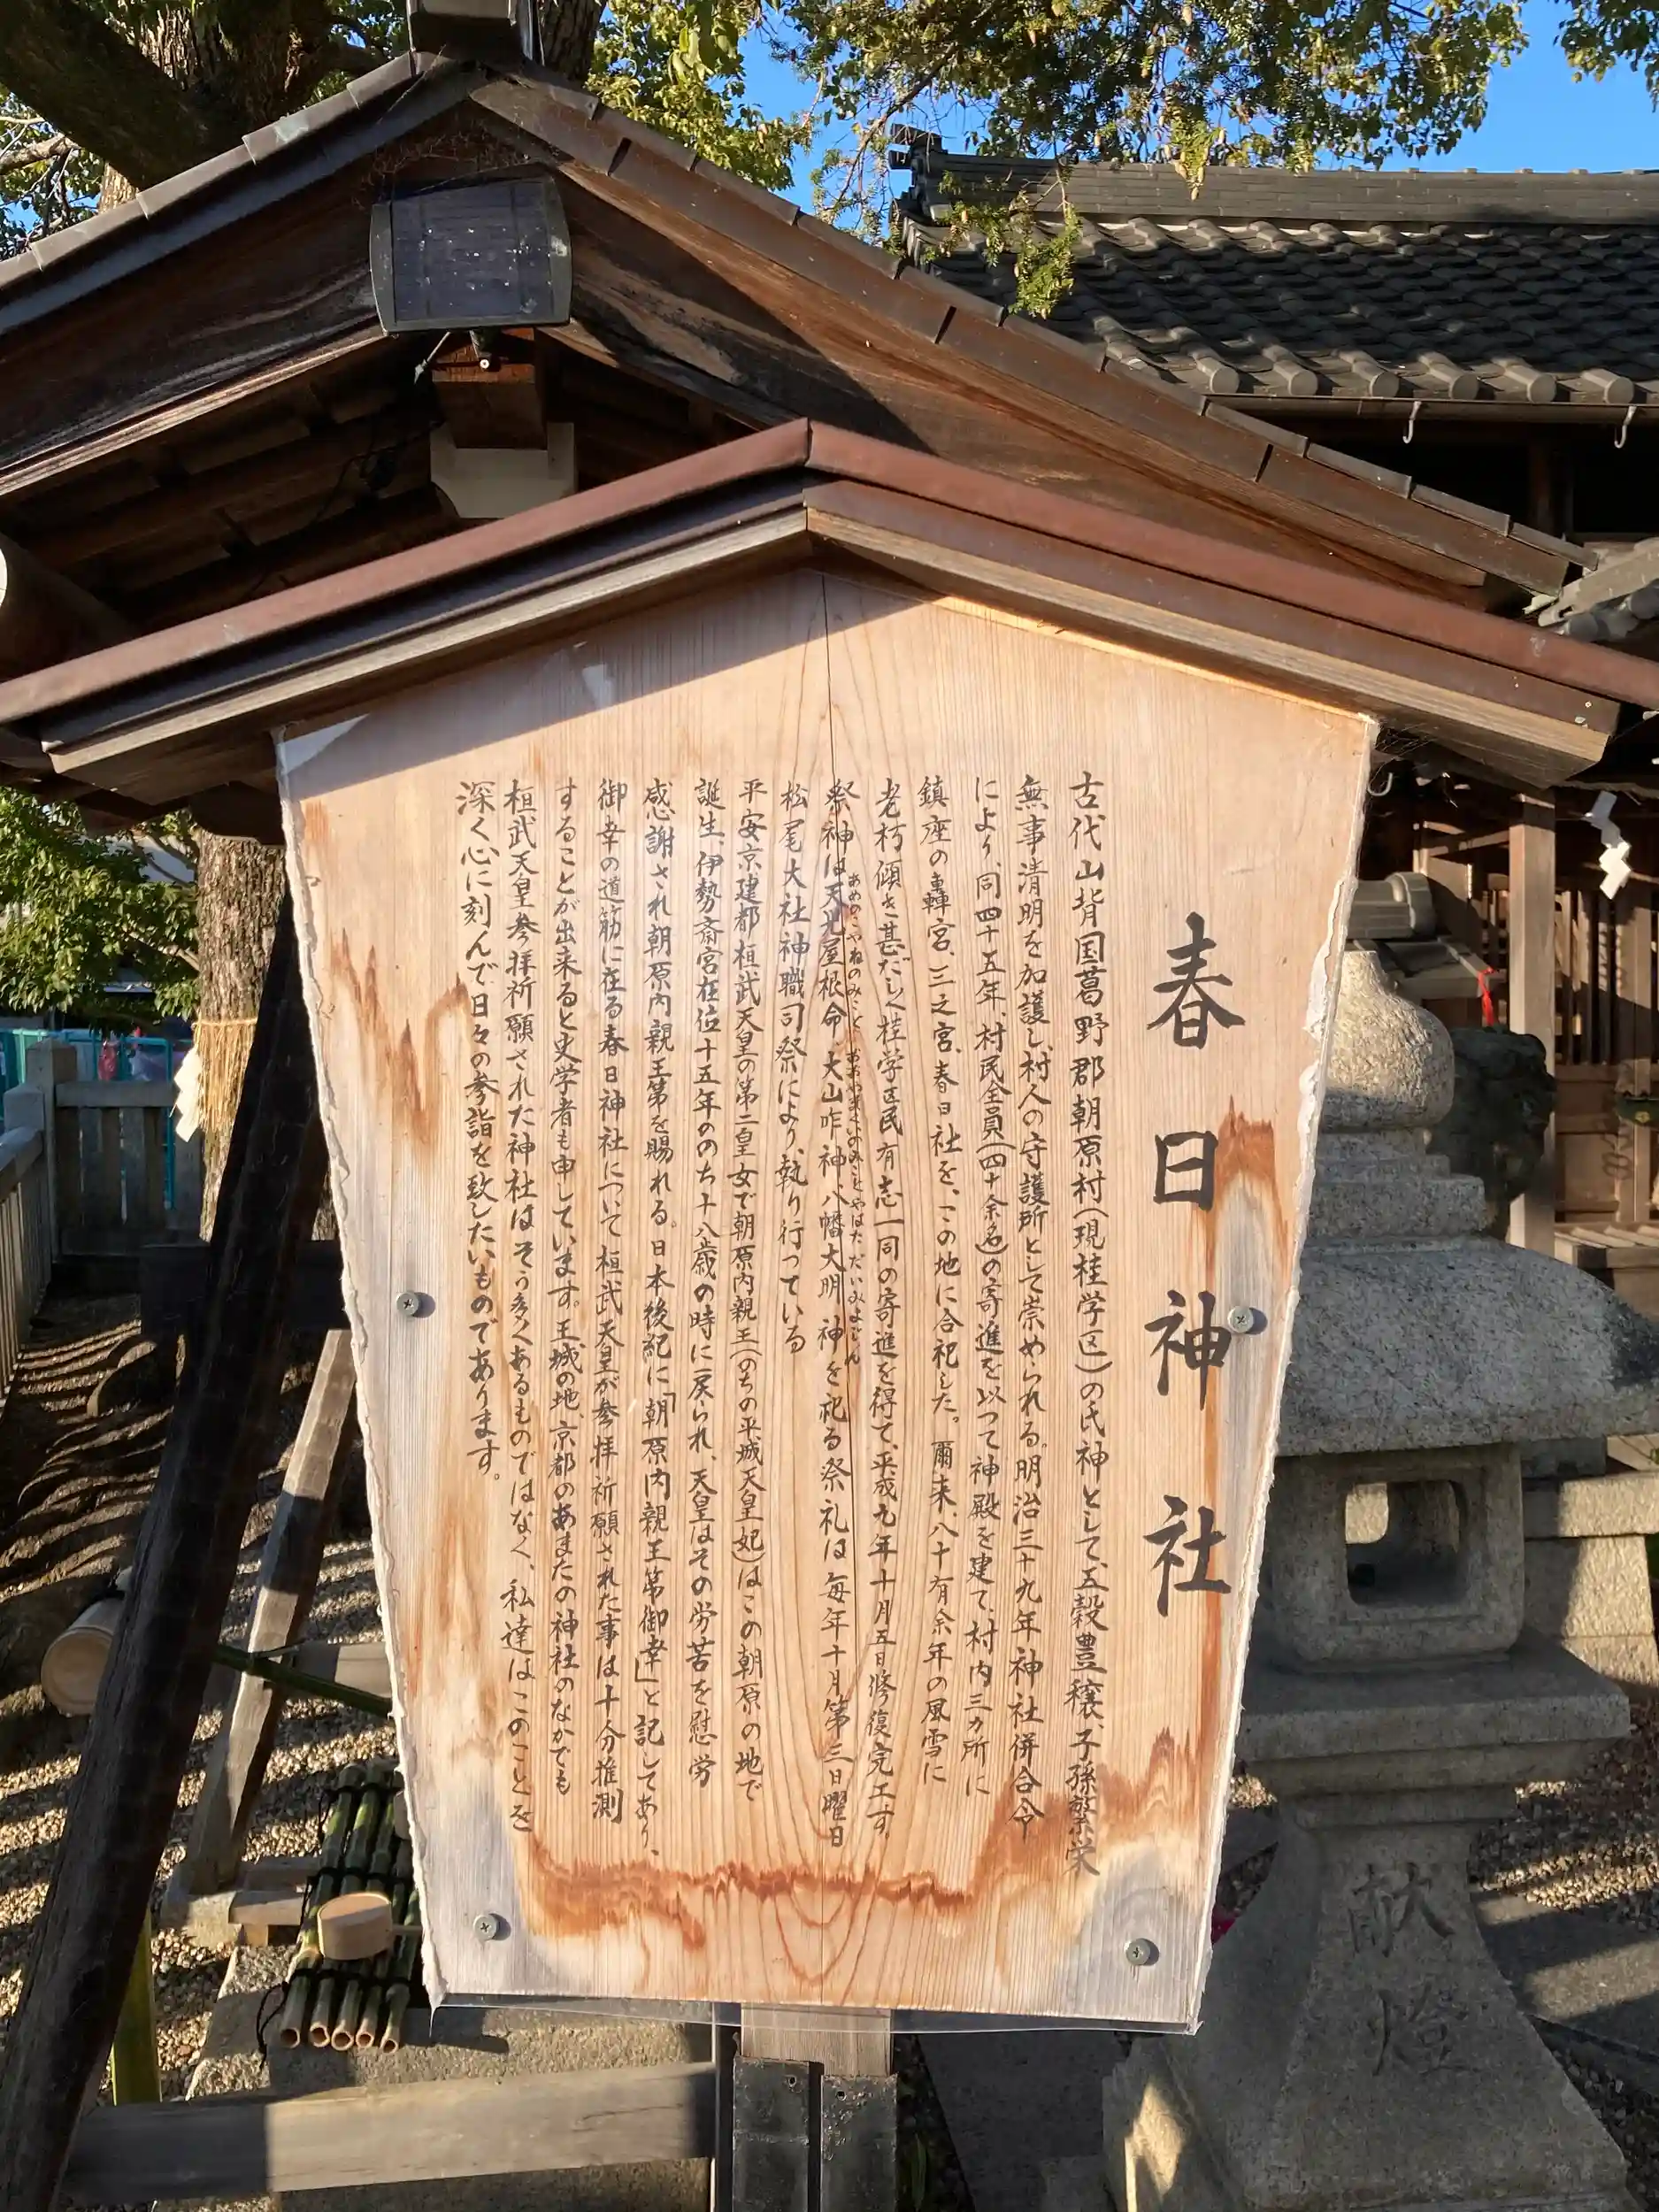 春日神社
古代山背国葛野郡朝原村(現桂学区)の氏神として、五穀豊穣、子孫繁栄
無事清明を加護し、村人の守護所として崇められる。明治三十九年神社併合令
により、同四十五年、村民全員(四十余名)の寄進を以つて神殿を建て、村内三ヵ所に
鎮座の轟宮、三之宮、春日社を、この地に合祀した。爾来、八十有余年の風雪に
老朽傾き甚だしく桂学区民有志一同の寄進を得て、平成九年十月五日修復完工す。
祭神は天児屋根命、大山咋神、八幡大明神を祀る祭礼は毎年十月第三日曜日
あめのこやねのみこと おおやまくいのみこと やはただいみょじん
松尾大社神職司祭により、執り行つている
平安京建都桓武天皇の第二皇女で朝原内親王(のちの平城天皇妃)はこの朝原の地で
誕生、伊勢斎宮在位十五年ののち十八歳の時に戻られ、天皇はその労苦を慰労
感謝され朝原内親王第を賜れる。日本後紀に「朝原内親王第御幸」と記してあり、
御幸の道筋に在る春日神社について桓武天皇が参拝祈願された事は十分推測
することが出来ると史学者も申しています。王城の地、京都のあまたの神社のなかでも
桓武天皇参拝祈願された神社はそう多くあるものではなく、私達はこのことを
深く心に刻んで日々の参詣を致したいものであります。
献燈